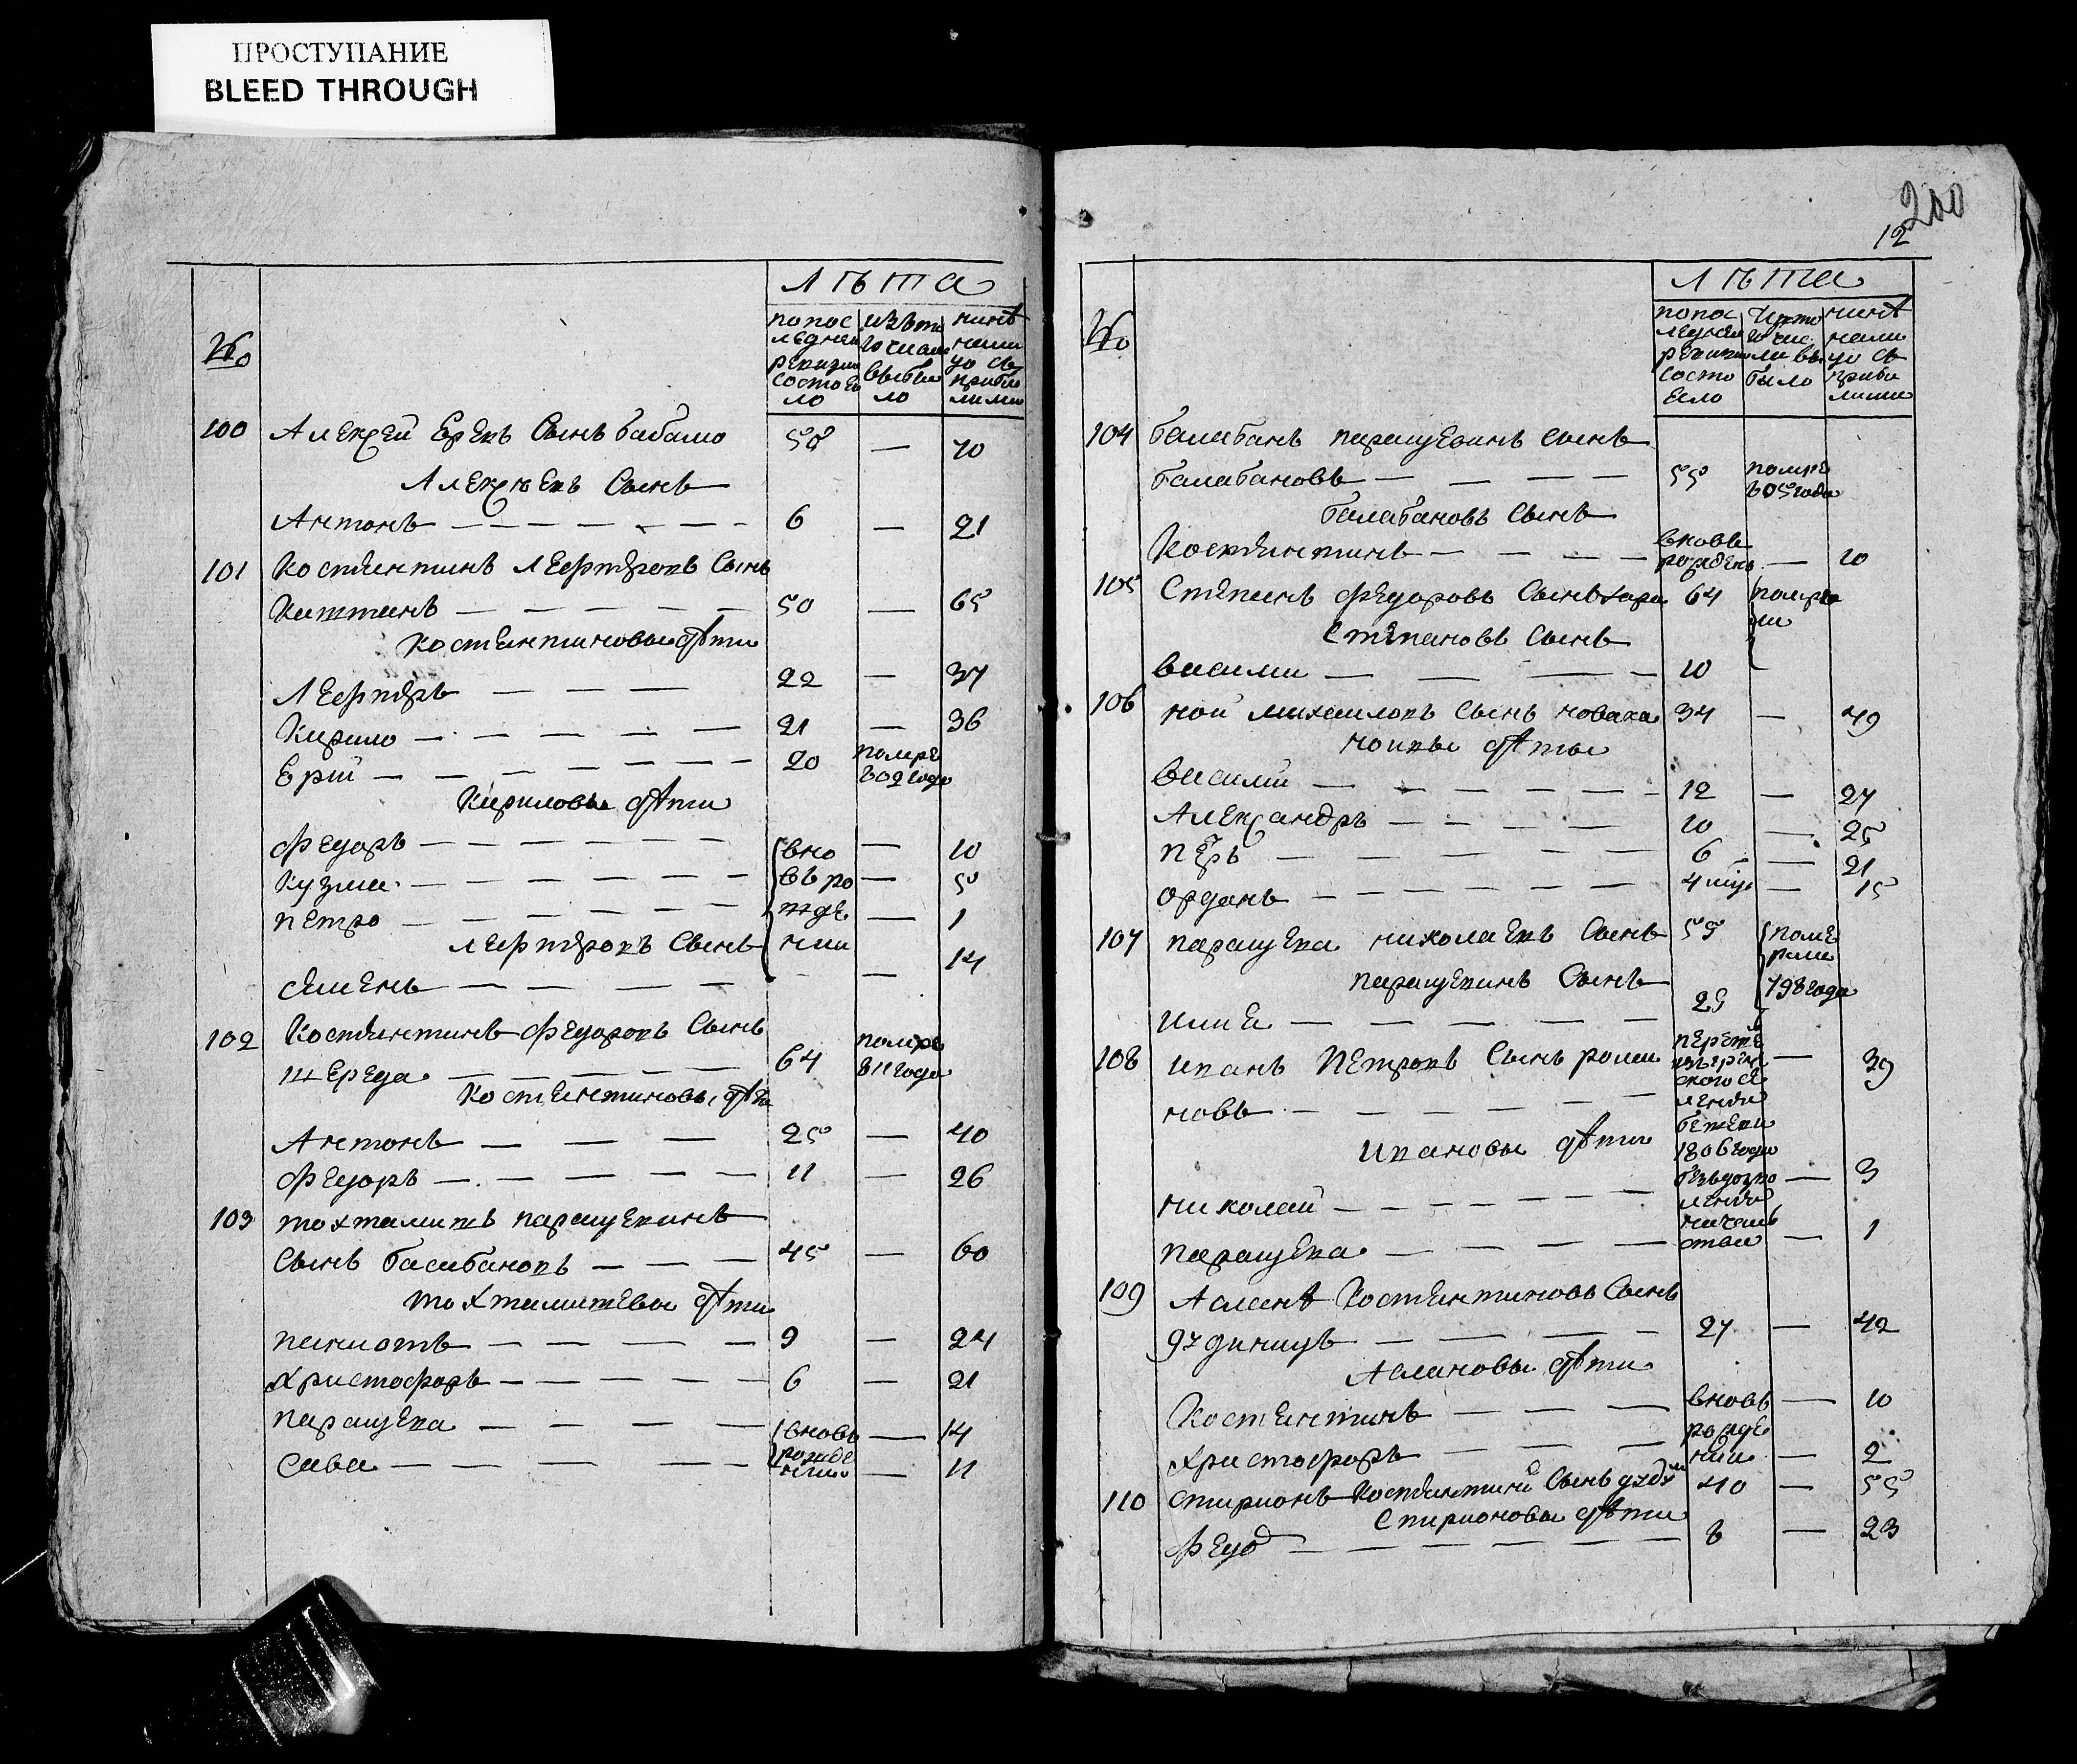 ПРОСТУПАНИЕ
BLEED THROUGH
Лѣта
№
попос леднеи ревизии состоело
изъ того числа выбило
нинѣ налицо съ прибилими
100 Алексей Ереевъ Сынъ бабало 58 — 70
Алексѣевъ Сынъ
Антонъ 6 — 21
101 Костянтинъ Лефтѣровъ Сынъ
Каттанъ 50 — 65
Костянтиновы дѣти
Лефтѣръ 22 — 37
Кирило 21 — 36
Ерий 20 помре 802 года
Кириловы дѣти
Федоръ вновь рождении — 10
Кузма — 5
Петро — 1
Лефтѣровъ Сынъ
Семенъ — 14
102 Костянтинъ Федоровъ Сынъ
шереда 64 помре 811 года
Костянтиновы дѣти
Антонъ 25 — 40
Федоръ 11 — 26
103 тохтамишъ паращевинъ
Сынъ балабановъ 45 — 60
тохтамишевы дѣти
панаотъ 9 — 24
Христофоръ 6 — 21
паращева вновь рождении — 14
Сава — 11
200
12
Лѣта
№
попос леднеи ревизии состоело
ис того числа выбыло
нинѣ налицо съ прибилими
104 балабанъ паращевинъ Сынъ
балабановъ 55 помре 805 года
балабановъ Сынъ
Костянтинъ вновь рожденъ — 10
105 Степанъ Федоровъ Сынъ хара 64 помрели
Степановъ Сынъ
василий 10
106 ной михаиловъ Сынъ новака 34 — 49
ноивы дѣты
василий 12 — 27
Александръ 10 — 25
Пѣтръ 6 — 21
ордань 4 — 15
107 паращева николаевъ Сынъ 55 померали
паращевинъ Сынъ 798 года
илие 25
108 иванъ Петровъ Сынъ рома
новъ — 39
1806 года
Ивановы дѣти
николай — 3
паращева — 1
109 Асланъ Костянтиновъ Сынъ
27 — 42
Аслановы дѣти
Костянтинъ вновь — 10
Христофоръ рождении — 2
110 спирионъ Костянтинъ Сынъ 40 — 55
Спирионовы дѣти
Федо 8 — 23